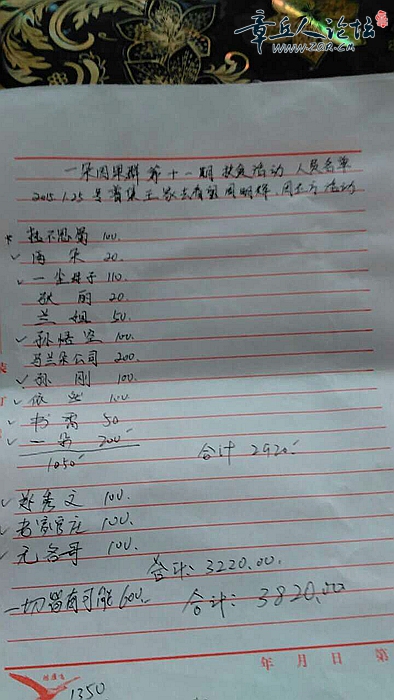 章丘人论坛
www.ZQR.CN
一朵因果群第十一期扶贫活动人员名单
2015.1.25号普集王家去看望周明辉、周 方活动
不思蜀 100.
海 朵 20.
一尘 子 110
耿 丽 20.
兰 姐 50.
孙悟空 100.
马兰朵公司 200.
孙 刚 100.
依 然 100
书 香 50
一 朵 200
1050
合计 2920
赵秀文 100.
官庄 100.
无名哥 100.
合计: 3220.00.
一切皆有可能 600.
合计: 3820.00
年 月 日 第
1350